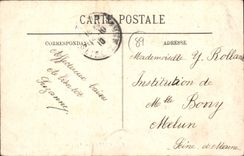 CARTE POSTALE
CORRESPONDANCE
ADRESSE
89
Affectueux baisers
de
Suzanne
Mademoiselle Y. Rolland
Institution de
Mlle Bony
Melun
Seine et Marne